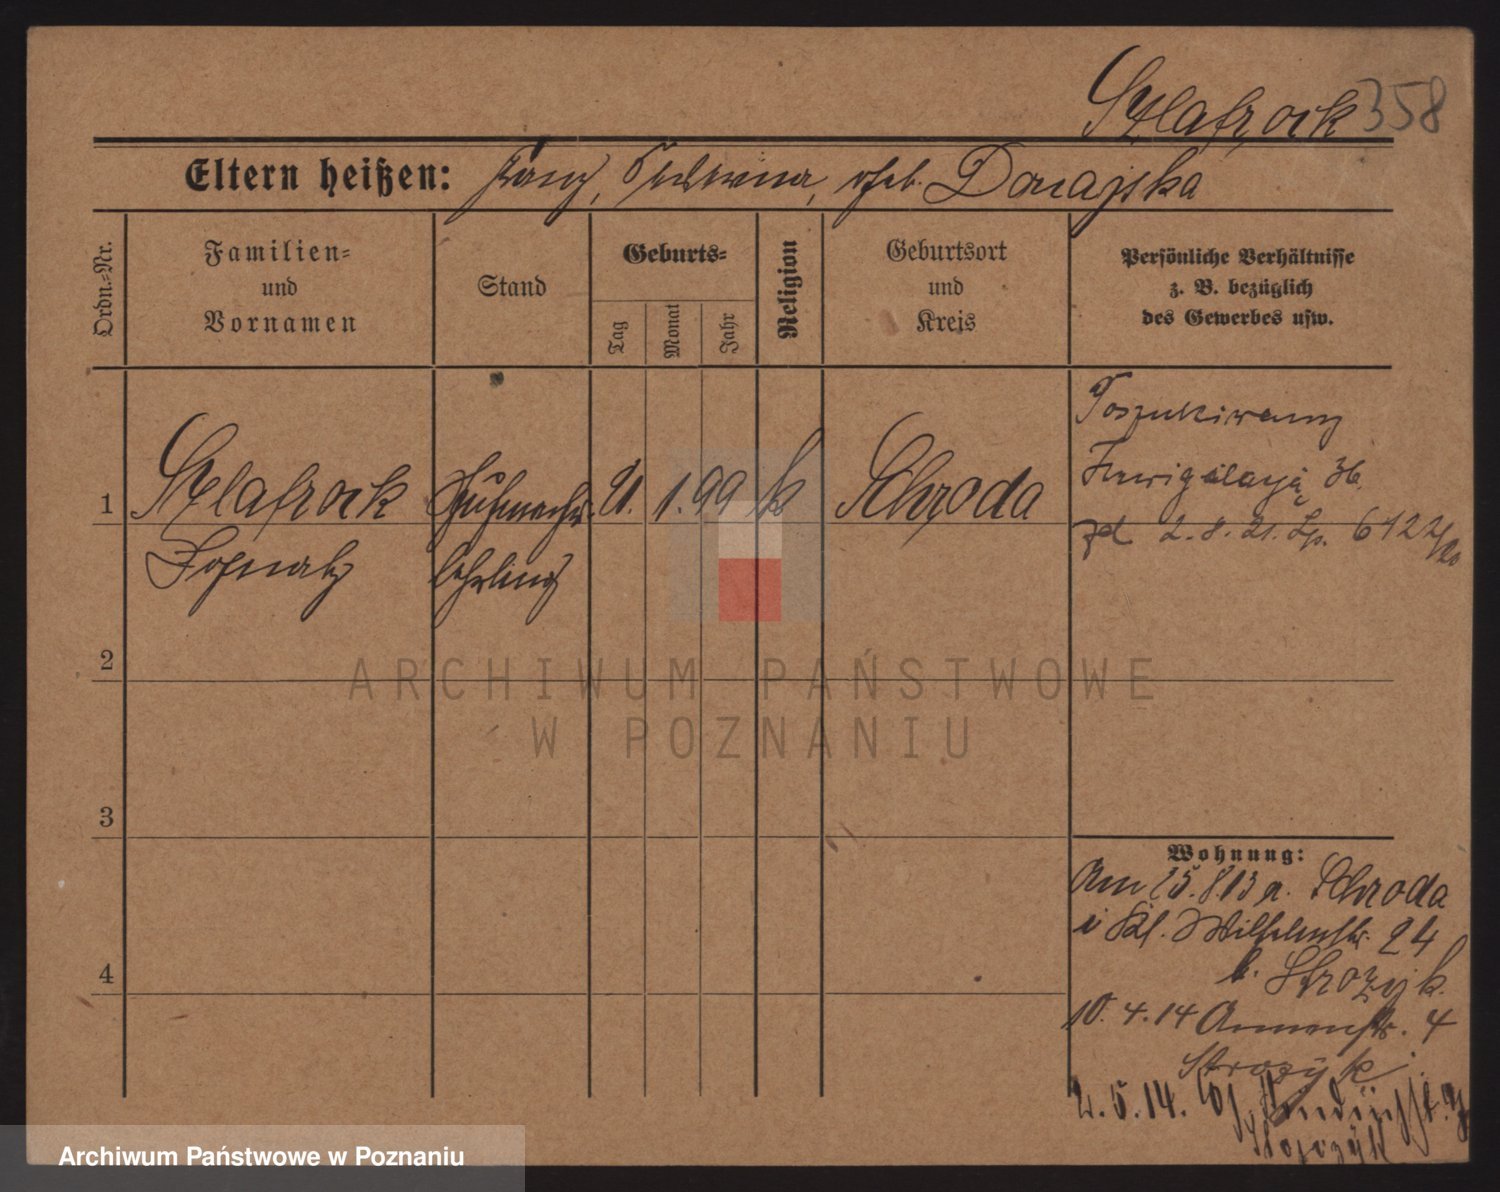 Szlafrock 358
Eltern heißen: Franz, geb. Donajska
Ordn.-Nr.
Familien-
und
Vornamen
Stand
Geburts-
Tag
Monat
Jahr
Religion
Geburtsort
und
Kreis
Persönliche Verhältnisse
z. B. bezüglich
des Gewerbes usw.
1
Szlafrock
Ignatz
Schuhmacher-
lehrling
1. 99
k
Schroda
Poszukiwany
36.
2. 8. 21. Lp. 6122/20
2
3
4
Wohnung:
Am 25.8.13 a. Schroda
Kl. Wilhelmstr. 24
b. Strozyk.
10. 4. 14 Annenstr. 4
Strozyk
2. 5. 14.
ARCHIWUM PAŃSTWOWE
W POZNANIU
Archiwum Państwowe w Poznaniu